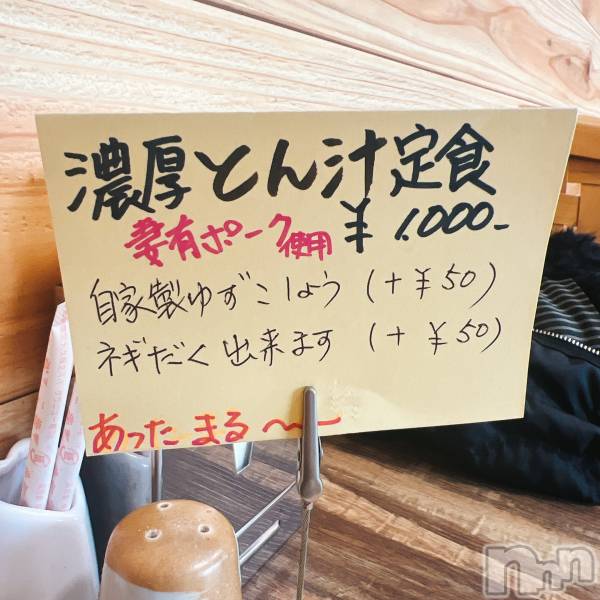 濃厚とん汁定食
妻有ポーク使用 ¥1.000-
自家製ゆずこしょう (+¥50)
ネギだく出来ます (+¥50)
あったまる〜〜
nmn